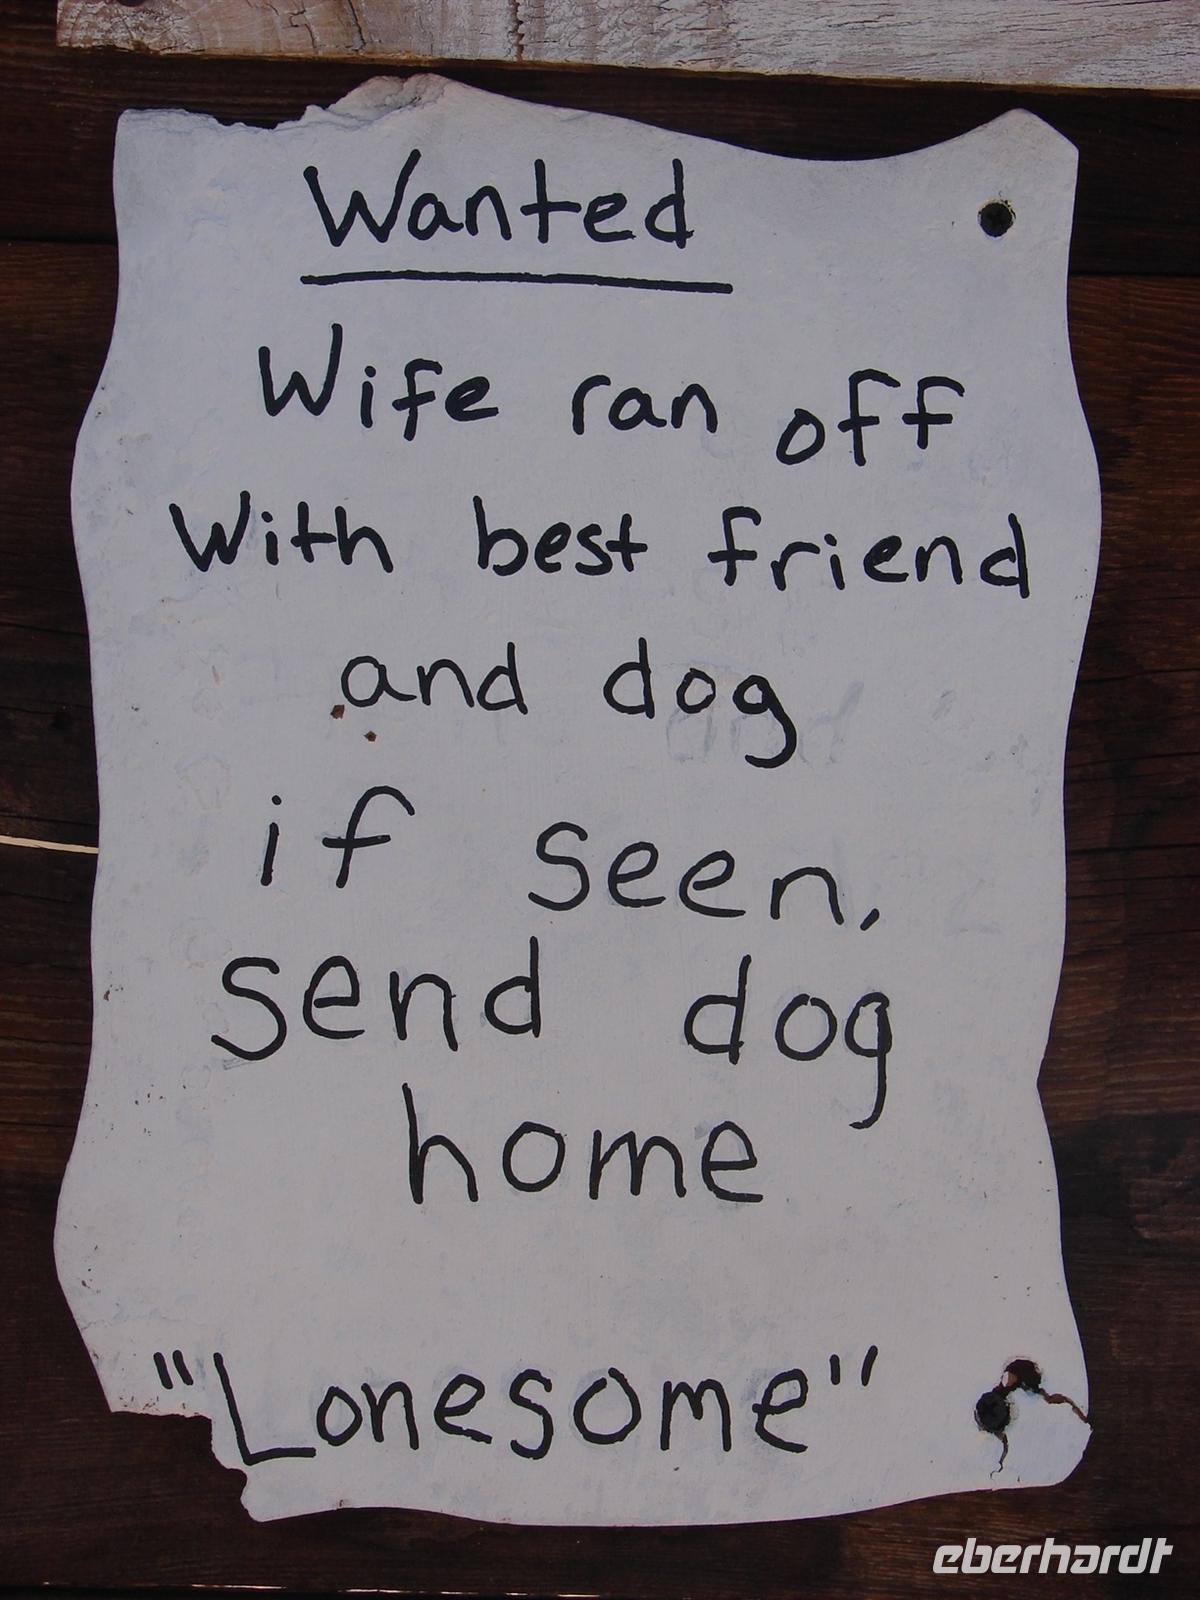 Wanted
Wife ran off
With best friend
and dog
if seen,
send dog
home
"Lonesome"
eberhardt